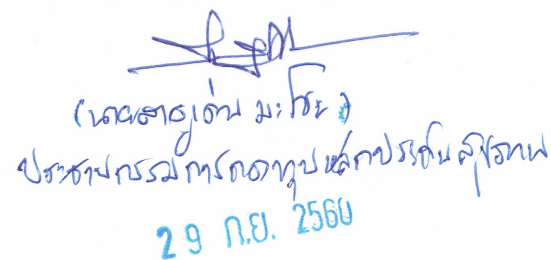 (นายสายัณ มะโซะ)
ประธานกรรมการกองทุนหลักประกันสุขภาพ
29 ก.ย. 2560